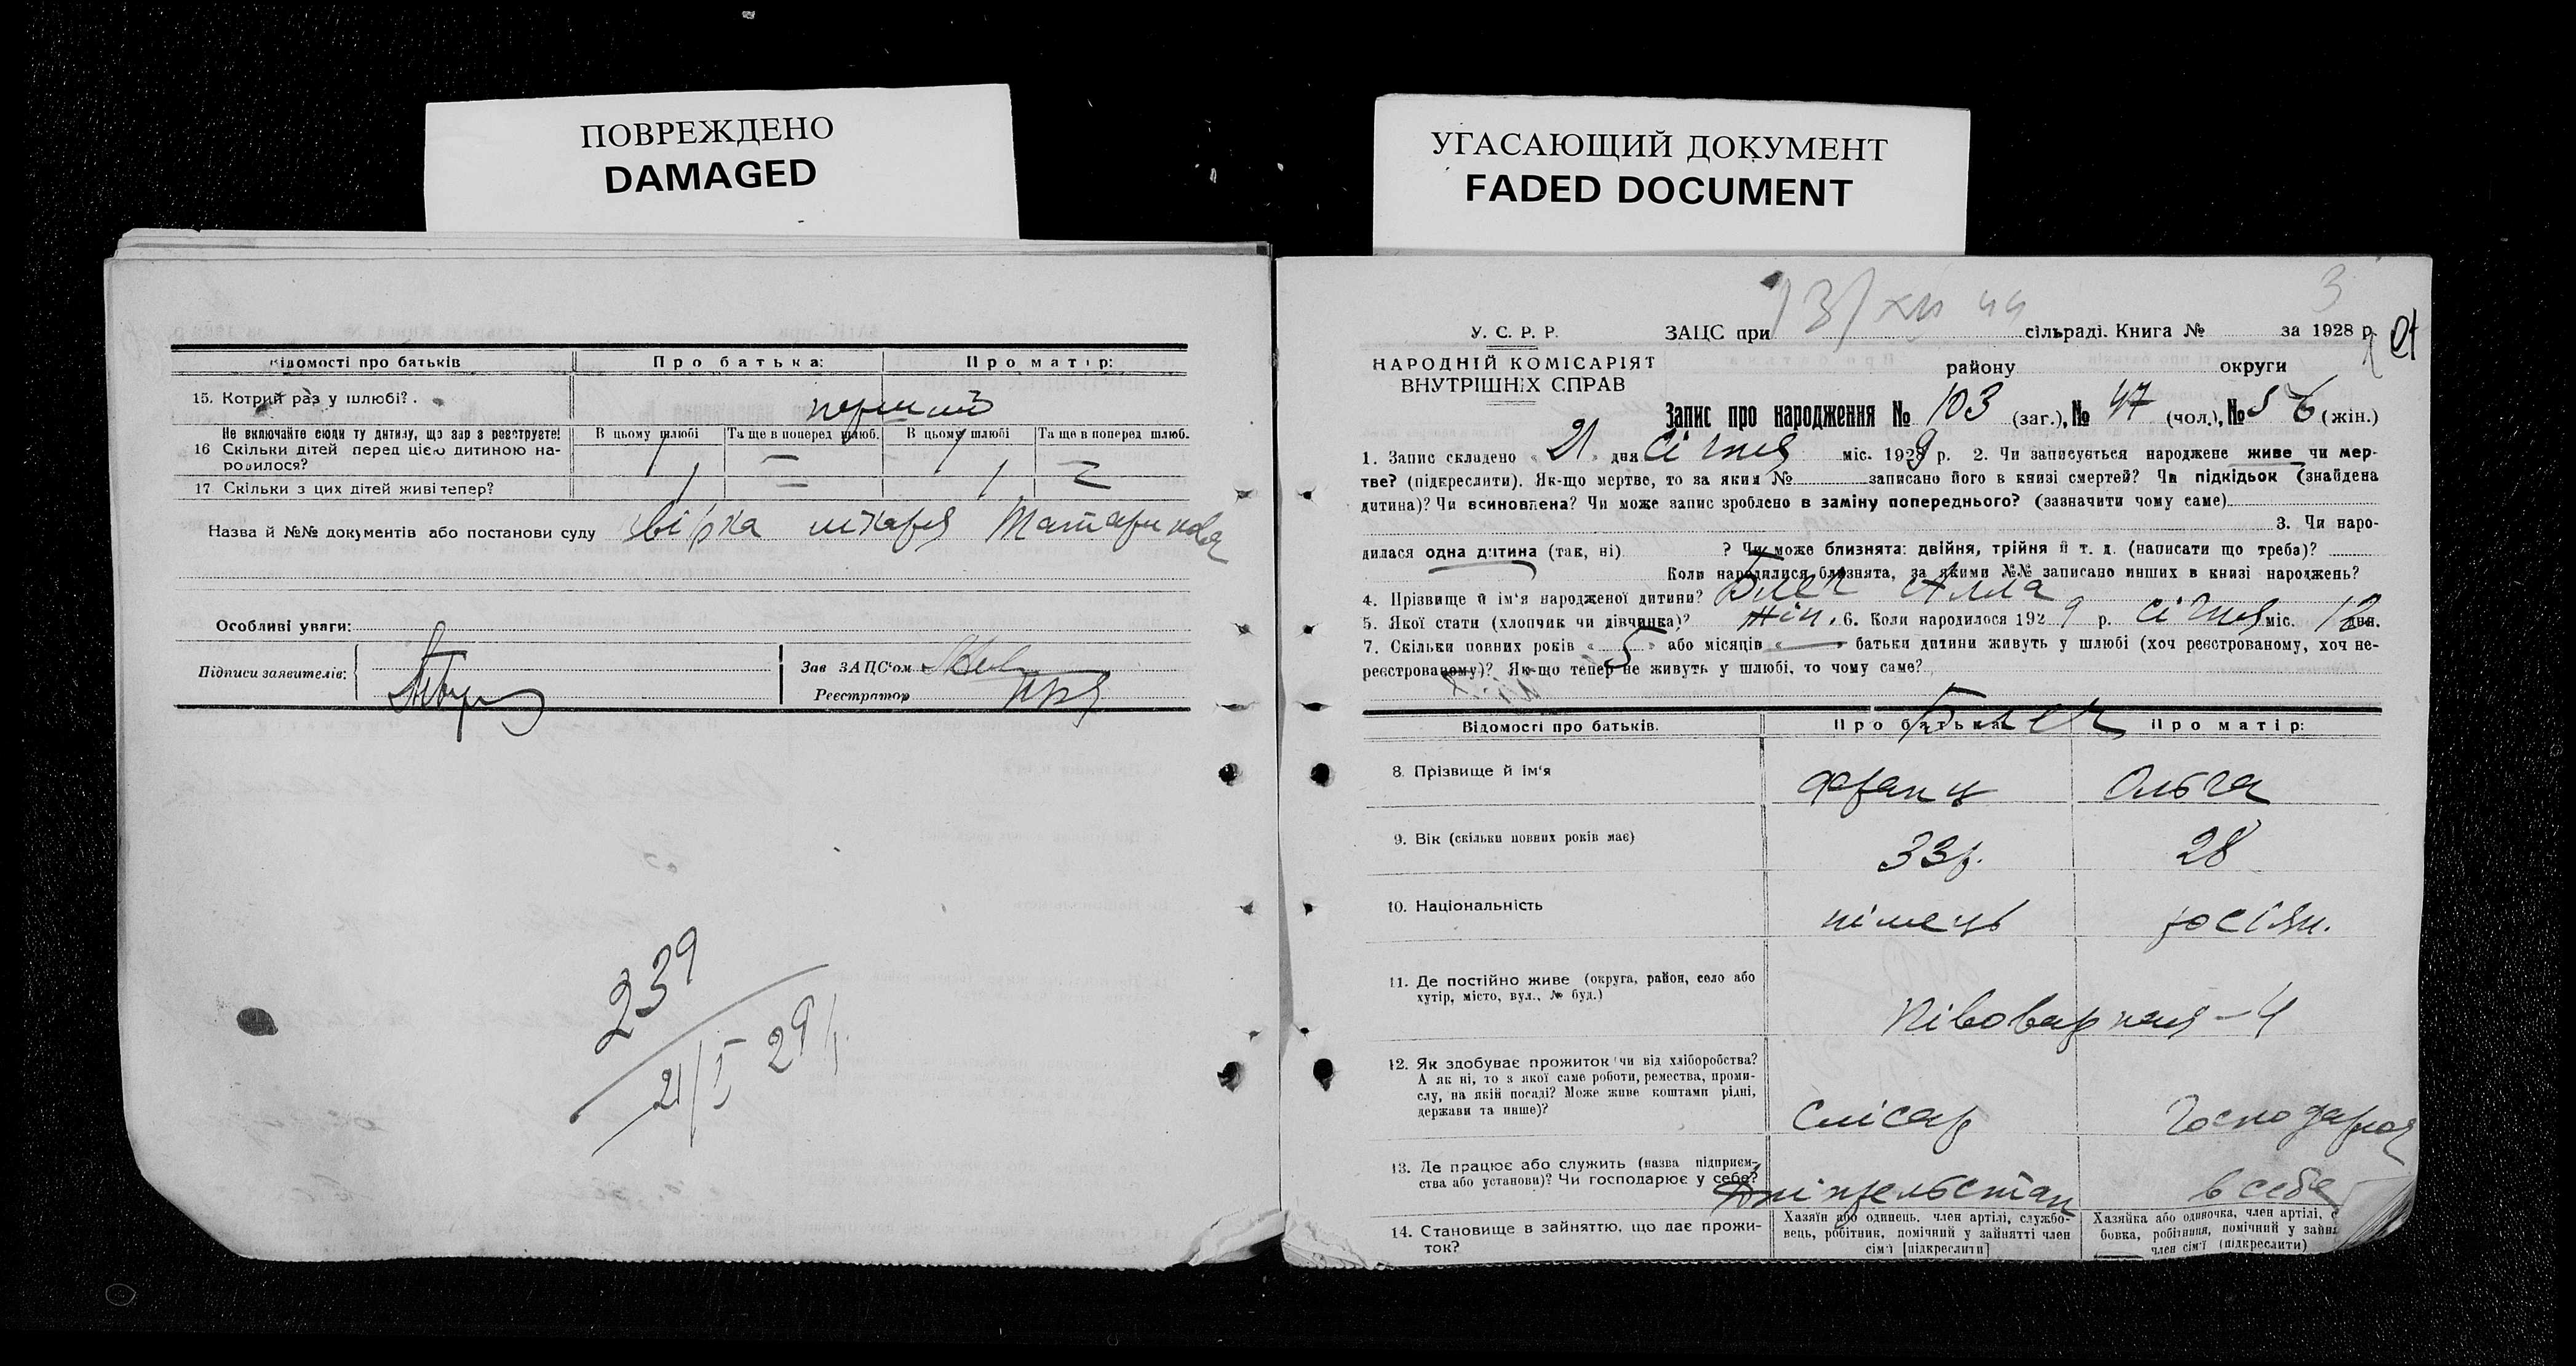 ПОВРЕЖДЕНО
DAMAGED
Відомості про батьків
Про батька:
Про матір:
15. Котрий раз у шлюбі?
перший
Не включайте сюди ту дитину, що зараз реєструєте!
16 Скільки дітей перед цією дитиною народилося?
В цьому шлюбі
Та ще в поперед шлюб.
В цьому шлюбі
Та ще в поперед шлюб.
1 — 1 —
17 Скільки з цих дітей живі тепер?
1 — 1 —
Назва й №№ документів або постанови суду
лікаря
Особливі уваги:
Підписи заявителів:
Зав ЗАЦС'ом
Реєстратор
239
21/I 29 р.
УГАСАЮЩИЙ ДОКУМЕНТ
FADED DOCUMENT
13/XII 44
3
У. С. Р. Р.
НАРОДНІЙ КОМІСАРІЯТ
ВНУТРІШНІХ СПРАВ
ЗАЦС при сільраді. Книга № за 1928 р.
району округи
Запис про народження № 103 (заг.), № 47 (чол.), № 56 (жін.)
1. Запис складено «21» дня січня міс. 1929 р. 2. Чи записується народжене живе чи мер-
тве? (підкреслити). Як-що мертве, то за яким № записано його в книзі смертей? Чи підкідьок (знайдена
дитина)? Чи всиновлена? Чи може запис зроблено в заміну попереднього? (зазначити чому саме)
3. Чи наро-
дилася одна дитина (так, ні) ? Чи може близнята: двійня, трійня й т. д. (написати що треба)?
Коли народилися близнята, за якими №№ записано инших в книзі народжень?
4. Прізвище й ім'я народженої дитини? Блех Алла
5. Якої стати (хлопчик чи дівчинка)? жін. 6. Коли народилося 1929 р. січня міс. 12 дня.
7. Скільки повних років «5» або місяців «—» батьки дитини живуть у шлюбі (хоч реєстрованому, хоч не-
реєстрованому)? Як-що тепер не живуть у шлюбі, то чому саме?
Відомості про батьків.
Про батька:
Про матір:
Блех
8. Прізвище й ім'я
Франц
Ольга
9. Вік (скільки повних років має)
33 р.
28
10. Національність
німець
росіян.
11. Де постійно живе (округа, район, село або
хутір, місто, вул., № буд.)
Півоварная – 4
12. Як здобуває прожиток чи від хліборобства?
А як ні, то з якої саме роботи, ремества, проми-
слу, на якій посаді? Може живе коштами рідні,
держави та инше)?
Слісар
Господарюя
13. Де працює або служить (назва підприєм-
ства або установи)? Чи господарює у себе?
в себе
14. Становище в зайняттю, що дає прожи-
ток?
Хазяїн або одинець, член артілі, службо-
вець, робітник, помічний у зайнятті член
сім'ї [підкреслити]
Хазяйка або одиночка, член артілі,
бовка, робітниця, помічний у зайн
член сім'ї (підкреслити)